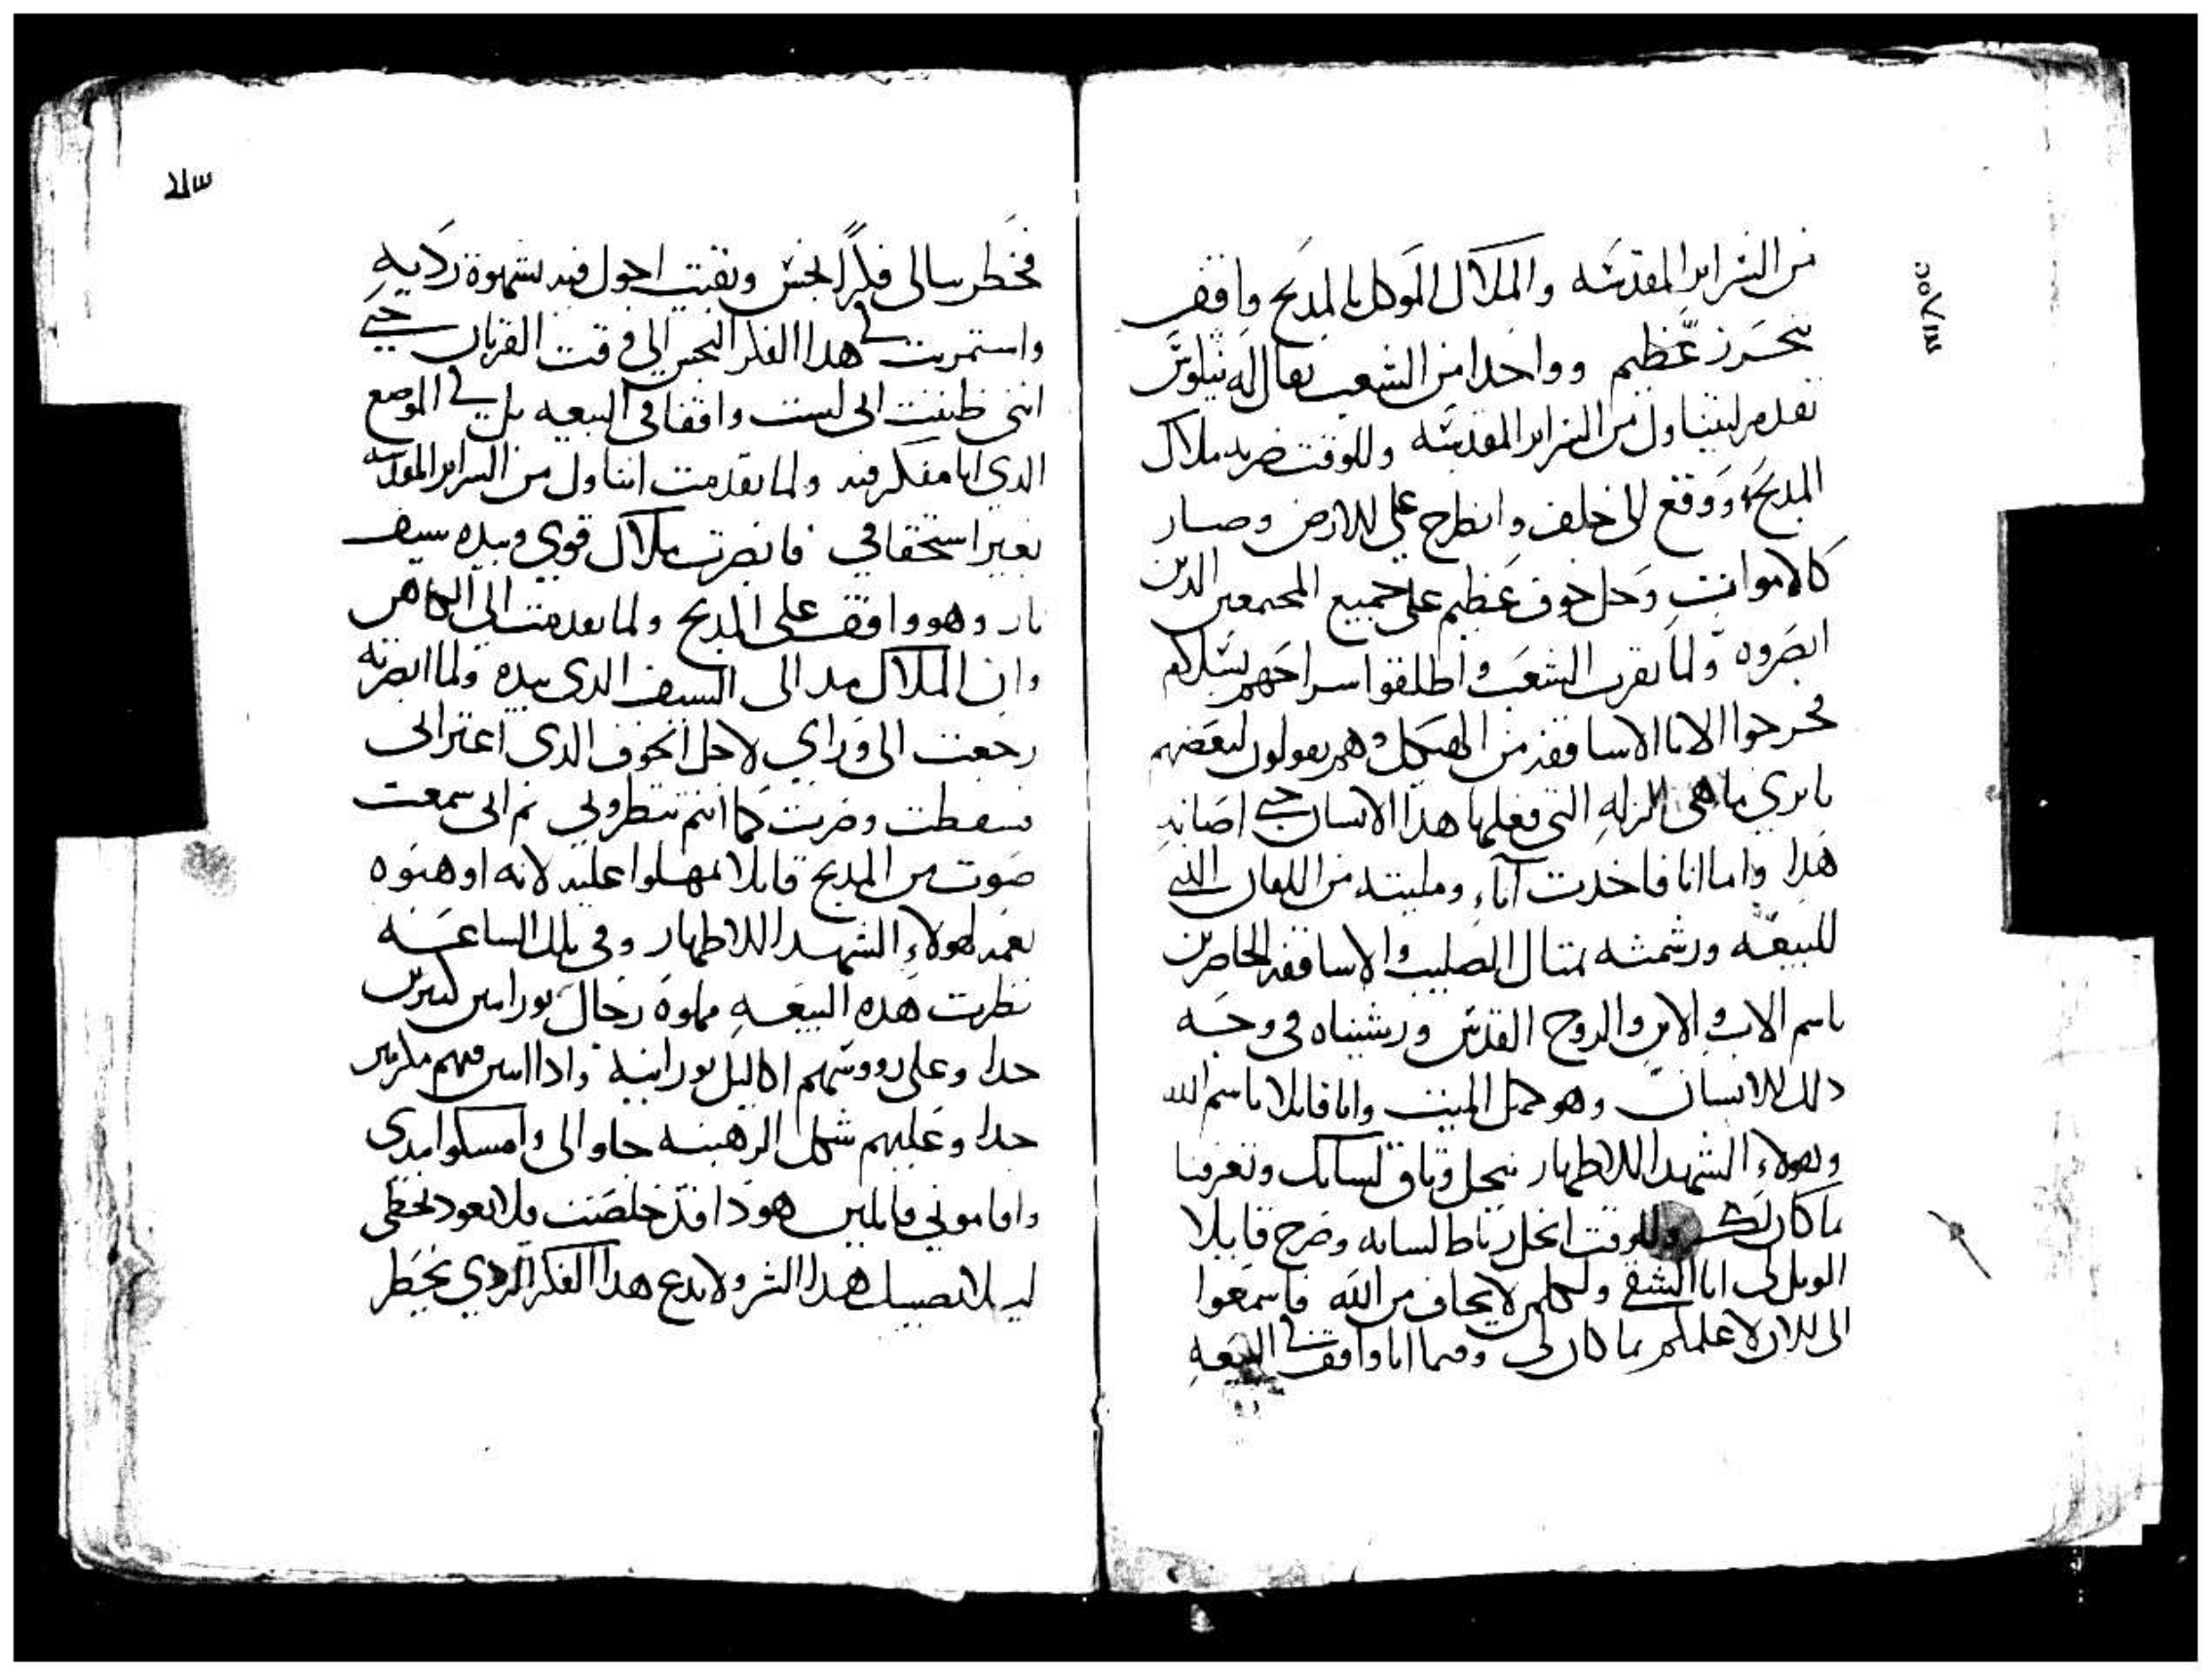 من السراير المقدسه والملاك الموكل بالمدبح واقف
بتحرز عظيم وواحدا من الشعب يقال له نيلوس
تقدم ليتناول من السراير المقدسه وللوقت ضربه ملاك
المدبح ووقع الى خلف وانطرح على الارض وصار
كالاموات وحل خوف عظيم على جميع المجتمعين الدين
ابصروه ولما تقرب الشعب واطلقوا سراحهم بسلام
فخرجوا الابا الاساقفه من الهيكل وهم يقولون لبعضهم
يا ترى ما هى الزله التى فعلها هدا الانسان حتى اصابه
هدا واما انا فاخدت آناء ومليته من اللقان الدي
للبيعه ورشمته بمثال الصليب والاساقفه الحاضرين
باسم الاب والابن والروح القدس ورشيناه فى وجه
دلك الانسان وهو مثل الميت وانا قايلا باسم الله
وهولاء الشهدا الاطهار ينحل وثاق لسانك وتعرفنا
ما كان لك وللوقت انحل رباط لسانه وصرخ قايلا
الويل لى انا الشقي ولكلمن لا يخاف من الله فاسمعوا
الى الان لاعلمكم بما كان لى وفيما انا واقف في البيعه
فخطر ببالى فكرا نجس وبقيت اجول فيه بشهوة رديه
واستمريت في هدا الفكر النجس الى وقت القربان حتى
اننى ظننت انى لست واقفا فى البيعه بل في الموضع
الدي انا مفكر فيه ولما تقدمت اتناول من السراير المقدسه
بغير استحقاقي فابصرت ملاك قوي وبيده سيف
نار وهو واقف على المدبح ولما تقدمت الى الكاهن
وان الملاك مد الى السيف الدى بيده ولما ابصرته
رجعت الى وراي لاجل الخوف الدى اعترانى
فسقطت وصرت كما انتم تنظروني ثم انى سمعت
صوت من المدبح قايلا تمهلوا عليه لانه اوهبوه
نعمه لهولاء الشهدا الاطهار وفى تلك الساعه
نظرت هده البيعه مملوة رجال نورانين كتيرين
جدا وعلى رووسهم اكاليل نورانية وادا اتنين منهم مكرمين
جدا وعليهم شكل الرهبنه جاوا الى وامسكوا بيدى
واقاموني قايلين هودا قد خلصت فلا تعود تخطى
ليلا يصيبك هدا الشر ولا تدع هدا الفكر الردي يخطر